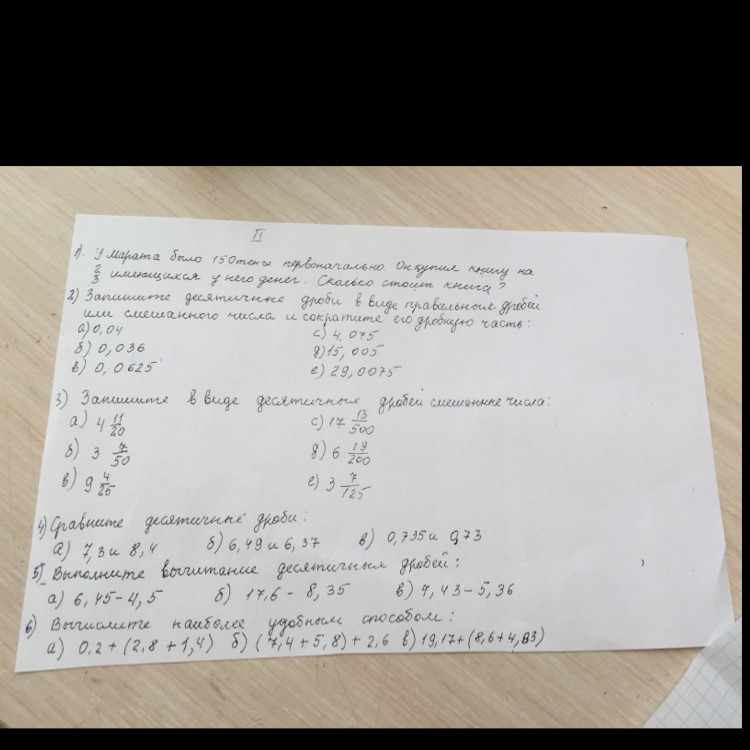 II
1). У Марата было 150тенге первоначально. Он купил книгу на
2/3 имеющихся у него денег. Сколько стоит книга?
2) Запишите десятичные дроби в виде правильных дробей
или смешанного числа и сократите его дробную часть:
а) 0,04 с) 4,075
б) 0,036 д) 15,005
в) 0,0625 е) 29,0075
3) Запишите в виде десятичных дробей смешанные числа:
а) 4 11/20 с) 17 13/500
б) 3 7/50 д) 6 19/200
в) 9 4/25 е) 3 7/125
4) Сравните десятичные дроби:
а) 7,3 и 8,4 б) 6,49 и 6,37 в) 0,735 и 0,73
5) Выполните вычитание десятичных дробей:
а) 6,45-4,5 б) 17,6 - 8,35 в) 7,43-5,36
6) Вычислите наиболее удобным способом:
а) 0,2 + (2,8 + 1,4) б) (7,4 + 5,8) + 2,6 в) 19,17+(8,6+4,83)